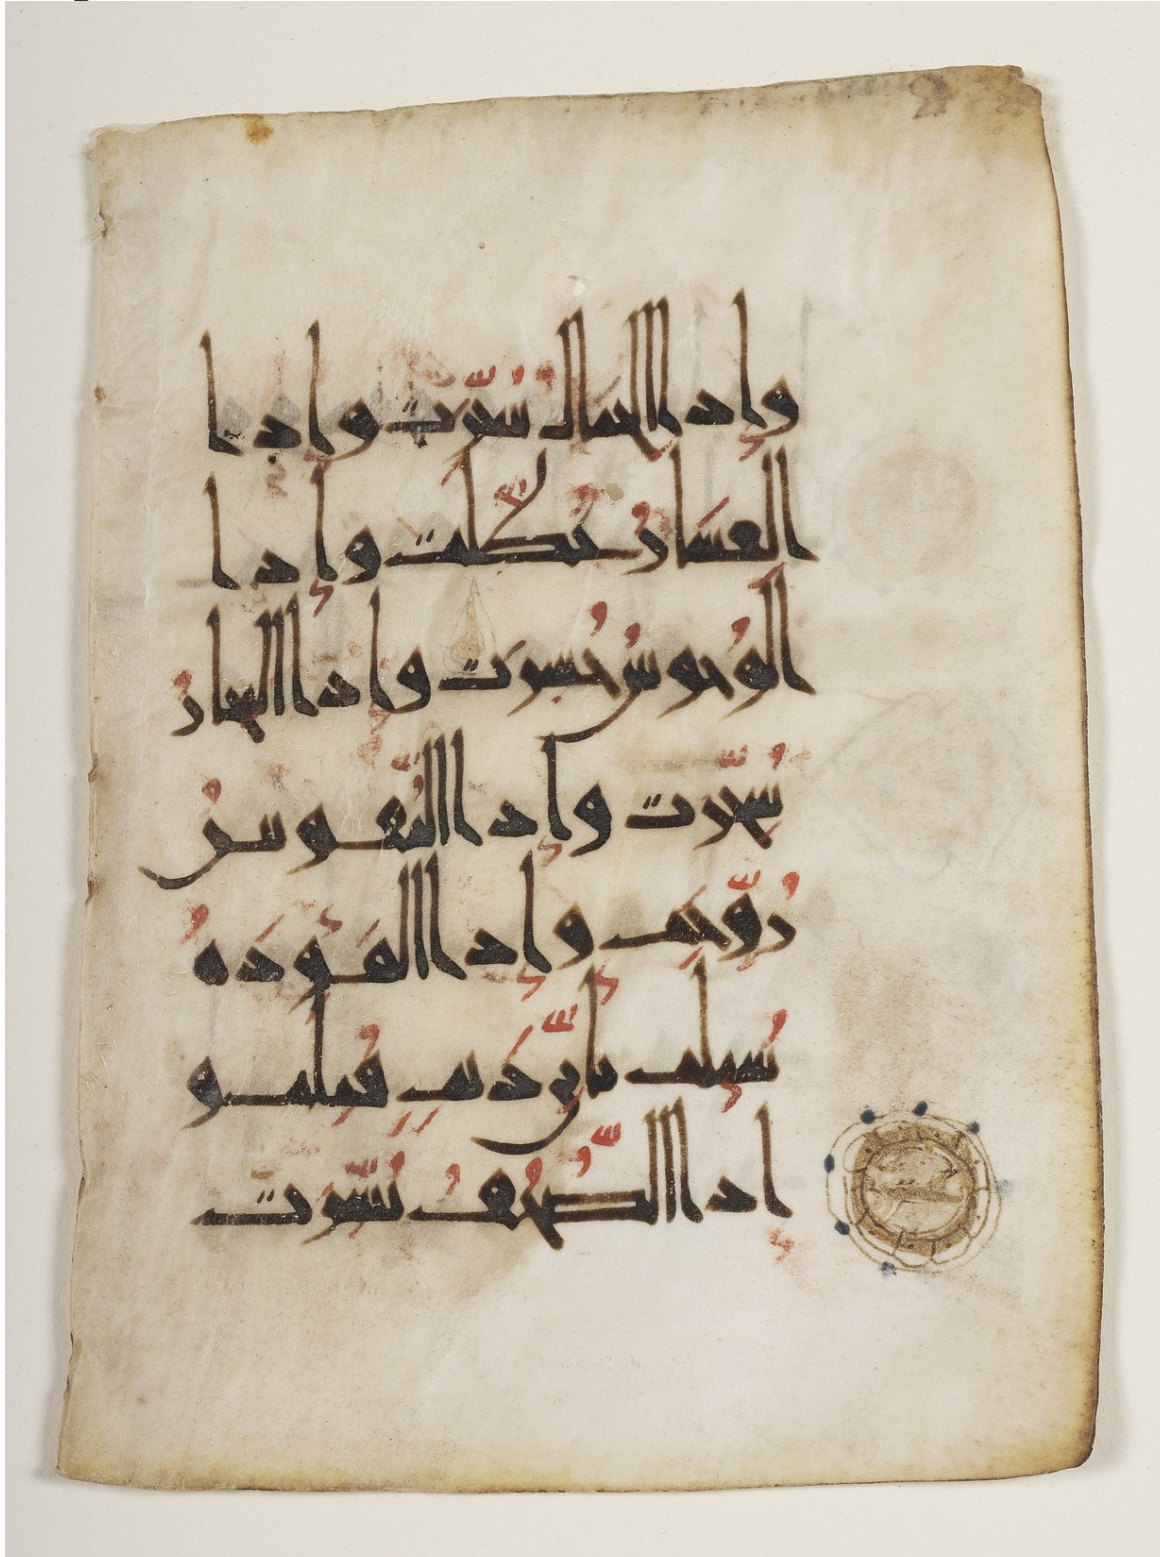 وإذا الجبال سيرت وإذا
العشار عطلت وإذا
الوحوش حشرت وإذا البحار
سجرت وإذا النفوس
زوجت وإذا الموءدة
سئلت بأي ذنب قتلت و
إذا الصحف نشرت